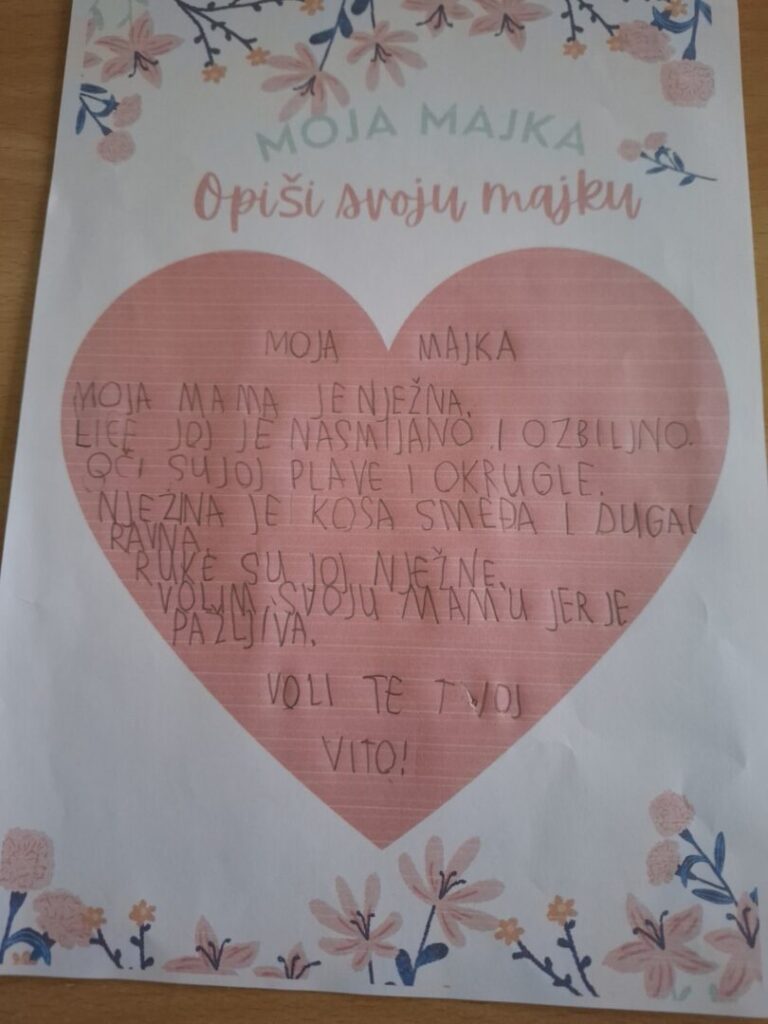 MOJA MAJKA
Opiši svoju majku
MOJA MAJKA
MOJA MAMA JE NJEŽNA.
LICE JOJ JE NASMIJANO I OZBILJNO.
OČI SU JOJ PLAVE I OKRUGLE.
NJEŽINA JE KOSA SMEĐA I DUGA I
RAVNA.
RUKE SU JOJ NJEŽNE.
VOLIM SVOJU MAMU JER JE
PAŽLJIVA.
VOLI TE TVOJ
VITO!